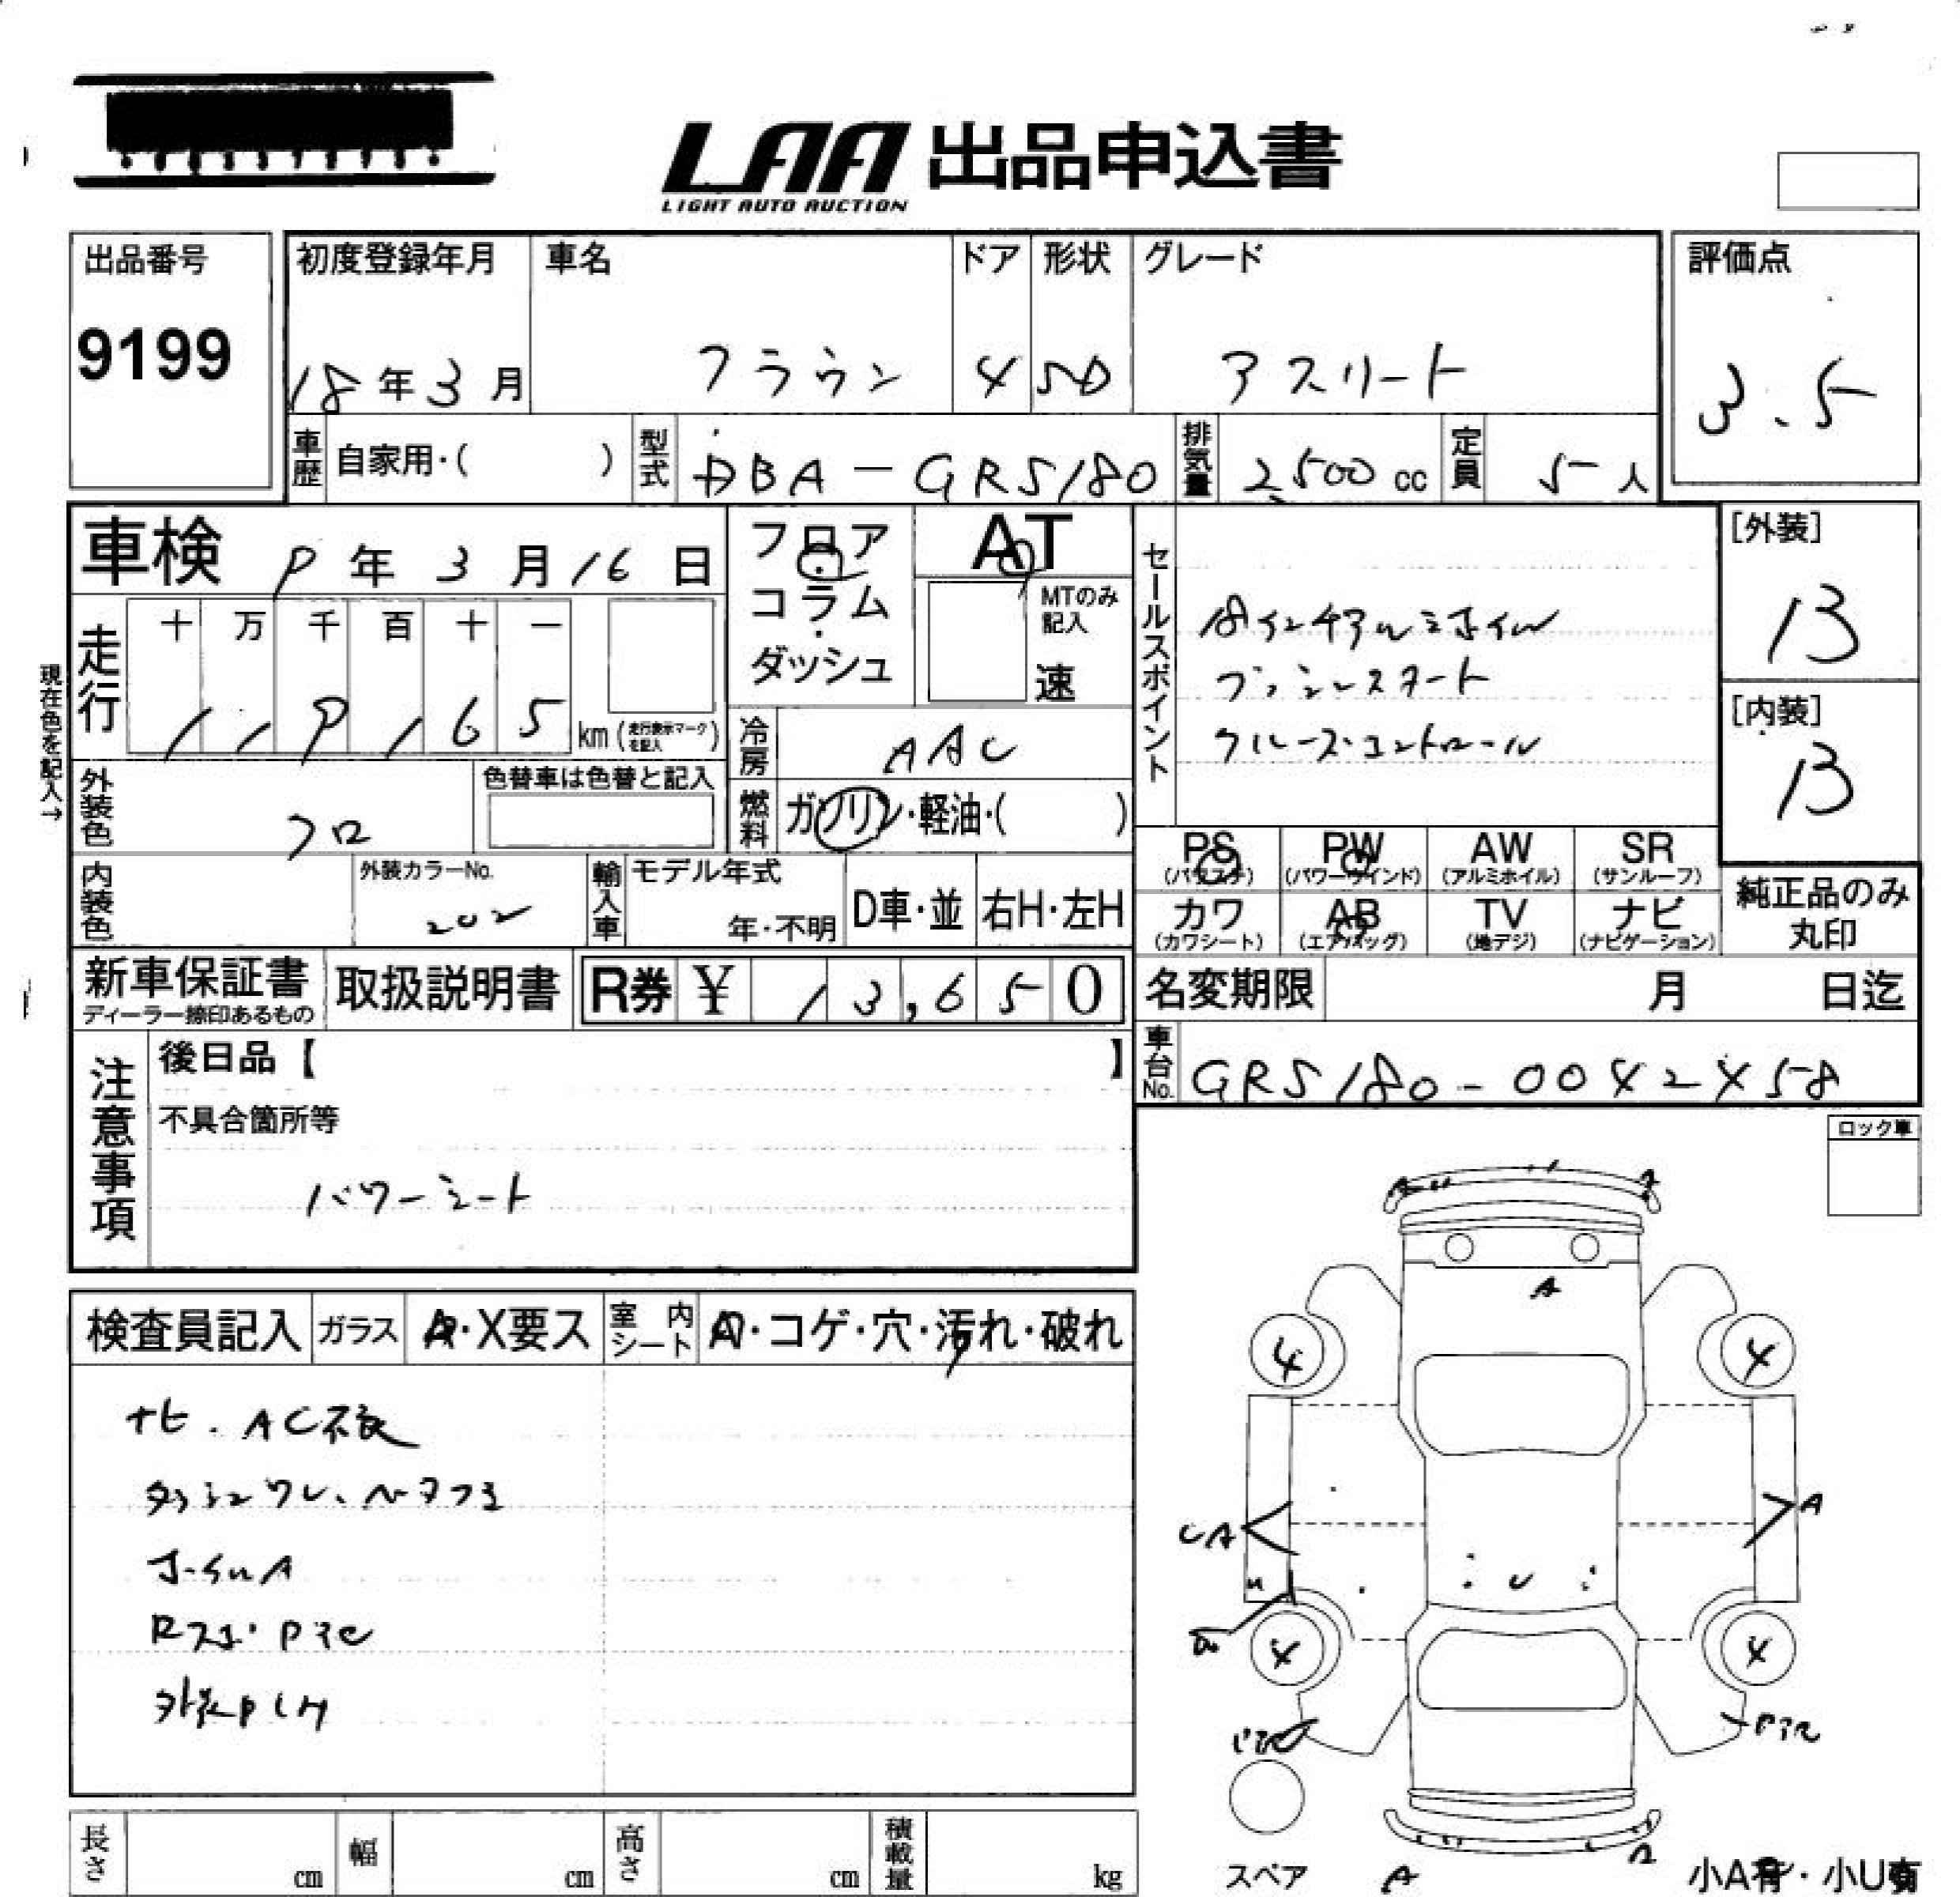 LAA 出品申込書
LIGHT AUTO AUCTION
出品番号
9199
初度登録年月
18年3月
車名
クラウン
ドア
4
形状
SD
グレード
アスリート
評価点
3.5
車歴 自家用・( )
型式 DBA-GRS180
排気量 2500cc
定員 5人
車検 9年3月16日
フロア・コラム・ダッシュ
AT
MTのみ記入
速
セールスポイント
18インチアルミホイル
プッシュスタート
クルーズコントロール
[外装]
B
[内装]
B
現在色を記入→
走行
十 万 千 百 十 一
119165km(走行表示マークを記入)
冷房 AAC
燃料 ガソリン・軽油・( )
外装色 クロ
色替車は色替と記入
内装色
外装カラーNo.
202
輸入車 モデル年式
年・不明
D車・並
右H・左H
PS (パワステ)
PW (パワーウインド)
AW (アルミホイル)
SR (サンルーフ)
カワ (カワシート)
AB (エアバッグ)
TV (地デジ)
ナビ (ナビゲーション)
純正品のみ丸印
新車保証書
ディーラー捺印あるもの
取扱説明書
R券 ¥ 13,650
名変期限 月 日迄
車台No. GRS180-0042458
注意事項
後日品【 】
不具合箇所等
パワーシート
ロック車
検査員記入
ガラス A・X要ス
室内シート A・コゲ・穴・汚れ・破れ
ナビ.AC不良
ホイルA
外装
A
4
4
CA
A
U
4
4
スペア
A
小A有・小U有
長さ cm
幅 cm
高さ cm
積載量 kg